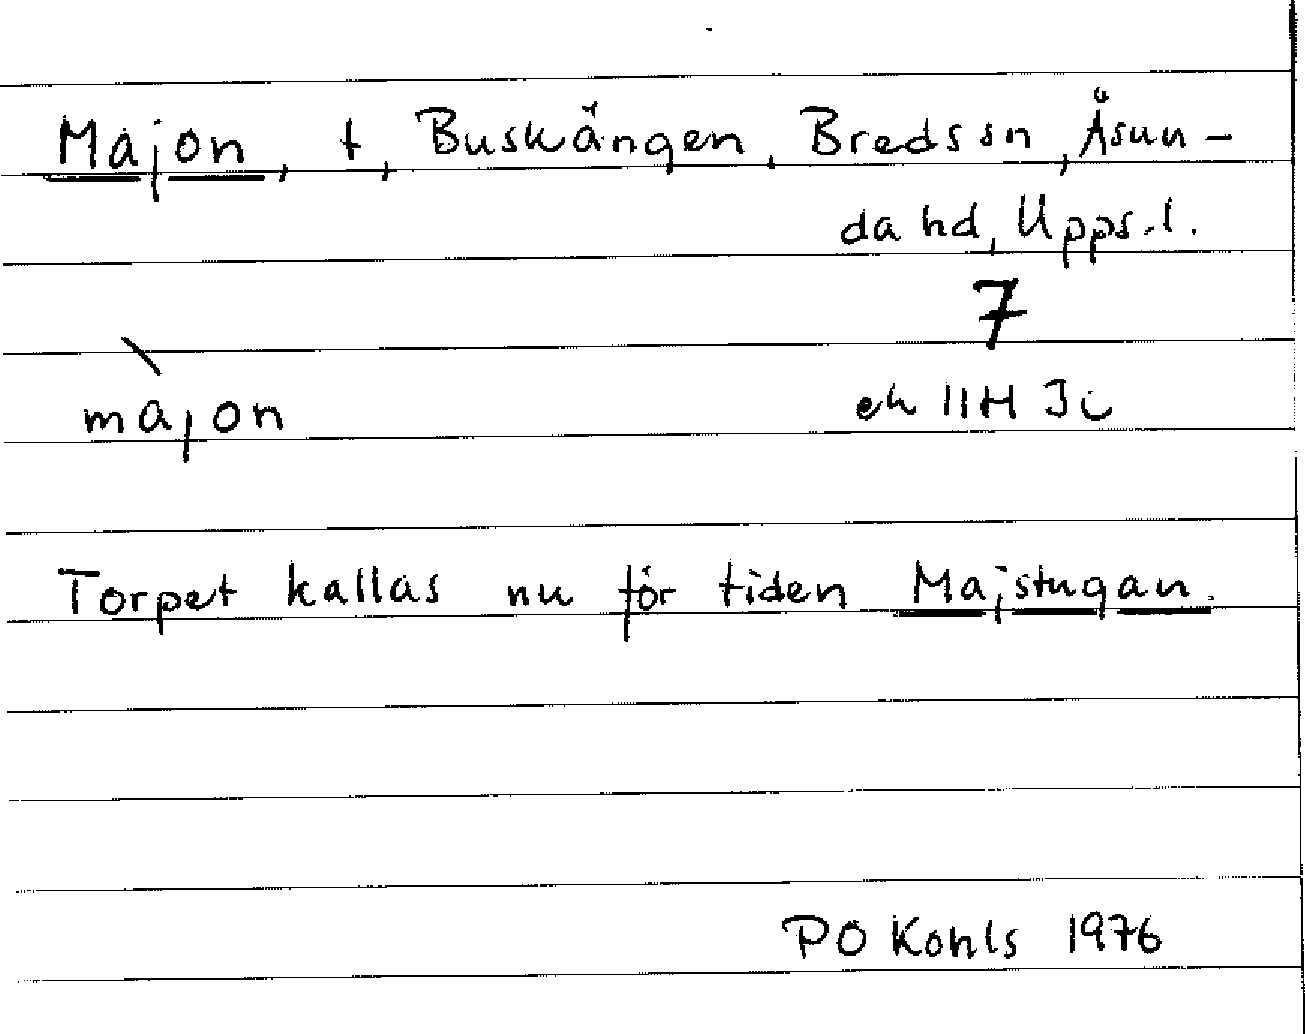 Majon, t, Buskängen, Breds sn, Åsun-
da hd, Upps.l.
7
màjon ek 11H 3i
Torpet kallas nu för tiden Majstugan.
PO Kohls 1976